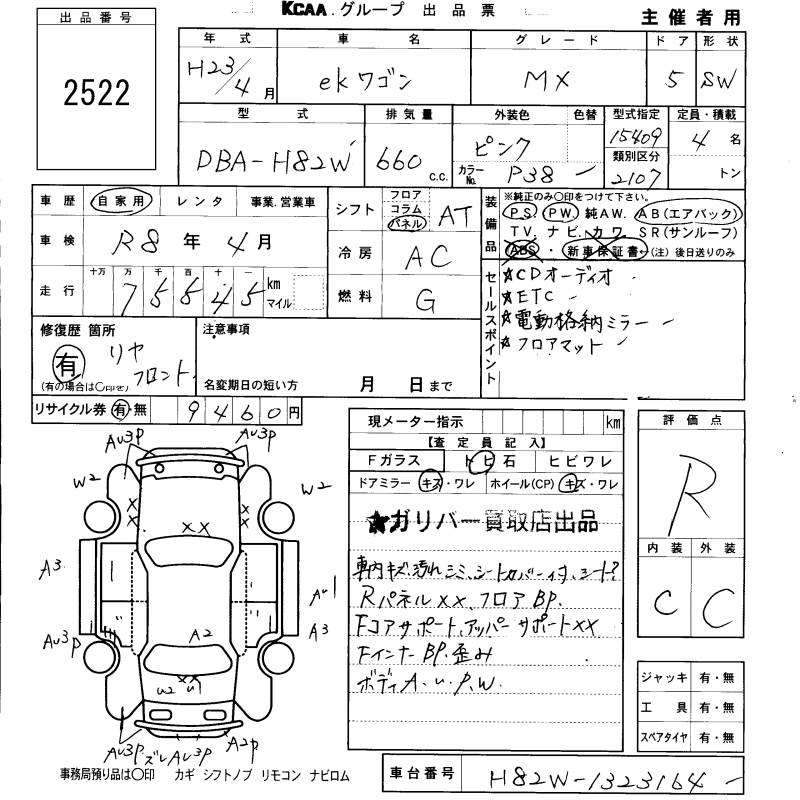 KCAA.グループ 出品票
主催者用
出品番号
2522
年式 車名 グレード ドア 形状
H23/4月 ekワゴン MX 5 SW
型式 排気量 外装色 色替 型式指定 定員・積載
DBA-H82W 660 c.c. ピンク 15409 4名
カラーNo. P38 類別区分 2107 トン
車歴 自家用 レンタ 事業.営業車
シフト フロア コラム パネル AT
装備品 ※純正のみ○印をつけて下さい。
PS PW 純AW. AB(エアバック)
TV. ナビ. カワ SR(サンルーフ)
ABS・新車保証書←(注)後日送りのみ
車検 R8年4月
冷房 AC
走行 十万 万 千 百 十 一 km マイル
75545
燃料 G
セールスポイント
★CDオーディオ
★ETC
★電動格納ミラー
★フロアマット
修復歴 箇所
有 リヤ
フロント
(有の場合は○印を)
注意事項
名変期日の短い方 月 日まで
リサイクル券 有 無 9460円
現メーター指示 km
【査定員記入】
Fガラス トビ石 ヒビワレ
ドアミラー キズ・ワレ ホイール(CP) キズ・ワレ
★ガリバー買取店出品
車内キズ.汚れ.シミ.シートカバー付.シート?
Rパネルxx.フロアBP.
Fコアサポート.アッパーサポートxx
FインナーBP.歪み
ボディA.u.P.W.
評価点
R
内装 外装
C C
ジャッキ 有・無
工具 有・無
スペアタイヤ 有・無
Au3P Au3P
W2 W2
xx xx
A3 Au1
A3
Au3P A2
W2 u1
Au3P ズレ Au3P A2P
事務局預り品は○印 カギ シフトノブ リモコン ナビロム
車台番号 H82W-1323164